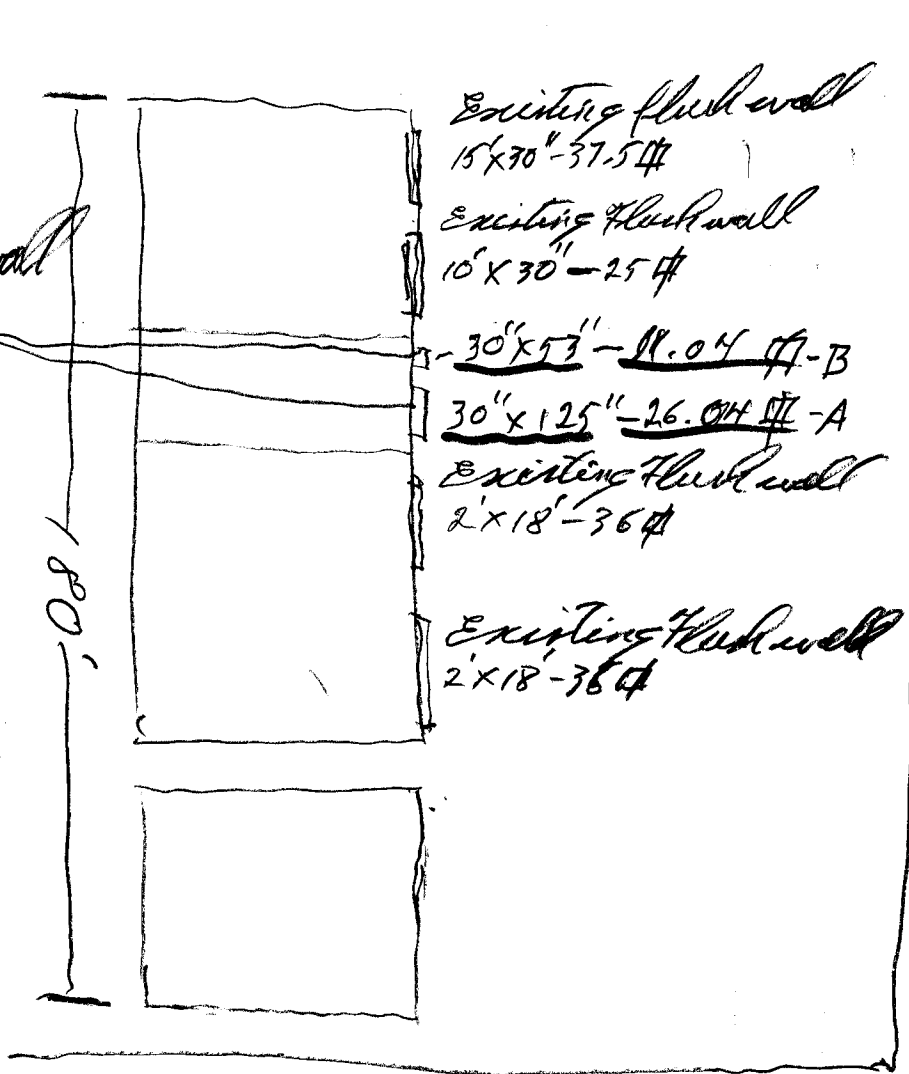 Existing flush wall
15'x30"-37.5⌗
Existing Flush wall
all
10'x30"-25⌗
-30"x53"-11.04⌗-B
30"x125"-26.04⌗-A
Existing Flush wall
2'x18'-36⌗
180'
Existing Flush wall
2'x18'-36⌗